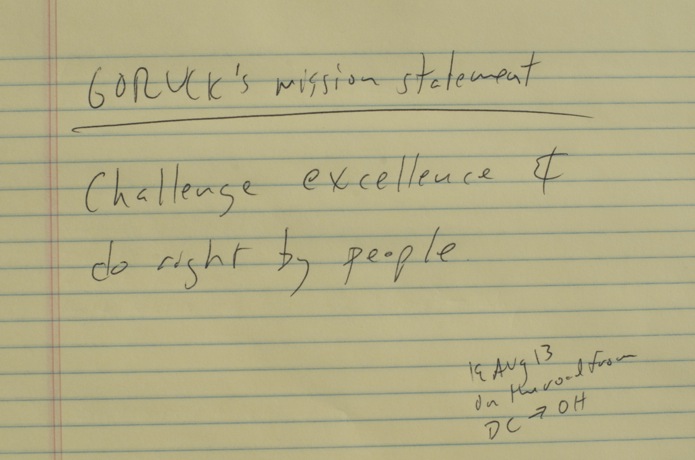 GORUCK's mission statement
Challenge excellence &
do right by people.
Aug 13
On the road from
DC → OH